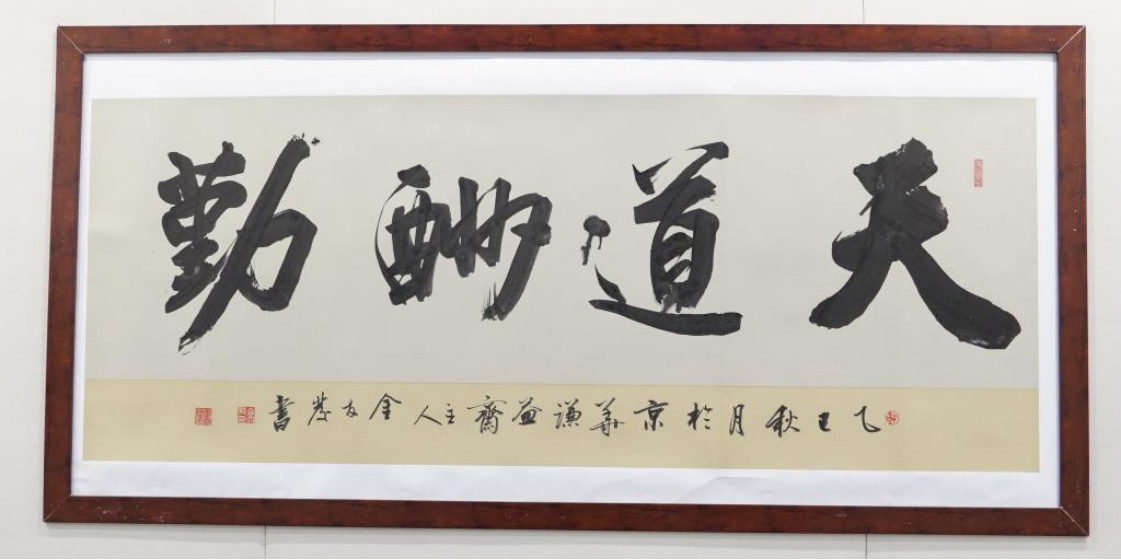 天道酬勤
乙巳秋月於京華謙益齋主人金友發書